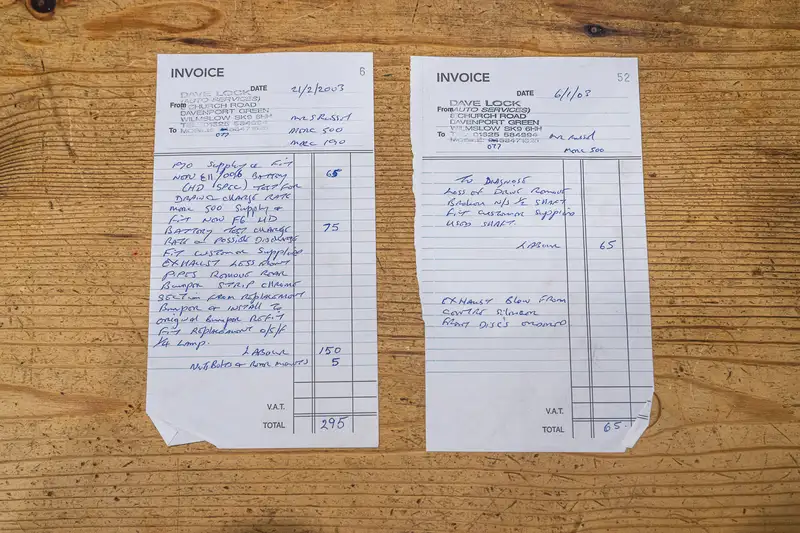 INVOICE 6
DATE 21/2/2003
DAVE LOCK
(AUTO SERVICES)
From CHURCH ROAD
DAVENPORT GREEN
WILMSLOW SK9
To
077
Merc 500
Merc 190
190 Supply & Fit
New Battery 65
(HD Spec) Test for
Drain & Charge Rate
Merc 500 Supply &
Fit New HD
Battery Test Charge 75
Rate & Possible Discharge
Fit Customer Supplied
Exhaust Less Front
Pipes Remove Rear
Bumper Strip Chrome
Section From Replacement
Bumper & Install to
Original Bumper Refit
Fit Replacement O/S/F
Lamp.
Labour 150
Nuts Bolts & Rear Mounts 5
V.A.T.
TOTAL 295
INVOICE 52
DATE 6/1/03
DAVE LOCK
From (AUTO SERVICES)
6 CHURCH ROAD
DAVENPORT GREEN
WILMSLOW SK9
To 01625
077
Merc 500
To Diagnose
Loss of Drive Remove
Broken N/S ½ Shaft
Fit Customer Supplied
Used Shaft.
Labour 65
Exhaust Blow From
Centre Silencer
Front Discs
V.A.T.
TOTAL 65.